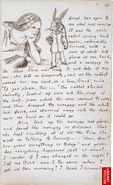 dried her eyes to
see what was coming.
It was the white
rabbit coming back
again, splendidly
dressed, with a
pair of white kid
gloves in one hand,
and a nosegay in
the other. Alice was ready to ask help of any
one, she felt so desperate, and as the rabbit
passed her, she said, in a low, timid voice,
"If you please, Sir—" the rabbit started
violently, looked up once into the roof of
the hall, from which the voice seemed to come,
and then dropped the nosegay and the white
kid gloves, and skurried away into the
as hard as it could go.
Alice took up the nosegay and gloves,
and found the nosegay so delicious that
she kept smelling at it all the time she
went on talking to herself
queer everything is today! and yesterday
everything happened just as usual:
I wonder if I was changed in the night?
Let me think: was I the same when I
got up this morning? I think I remember